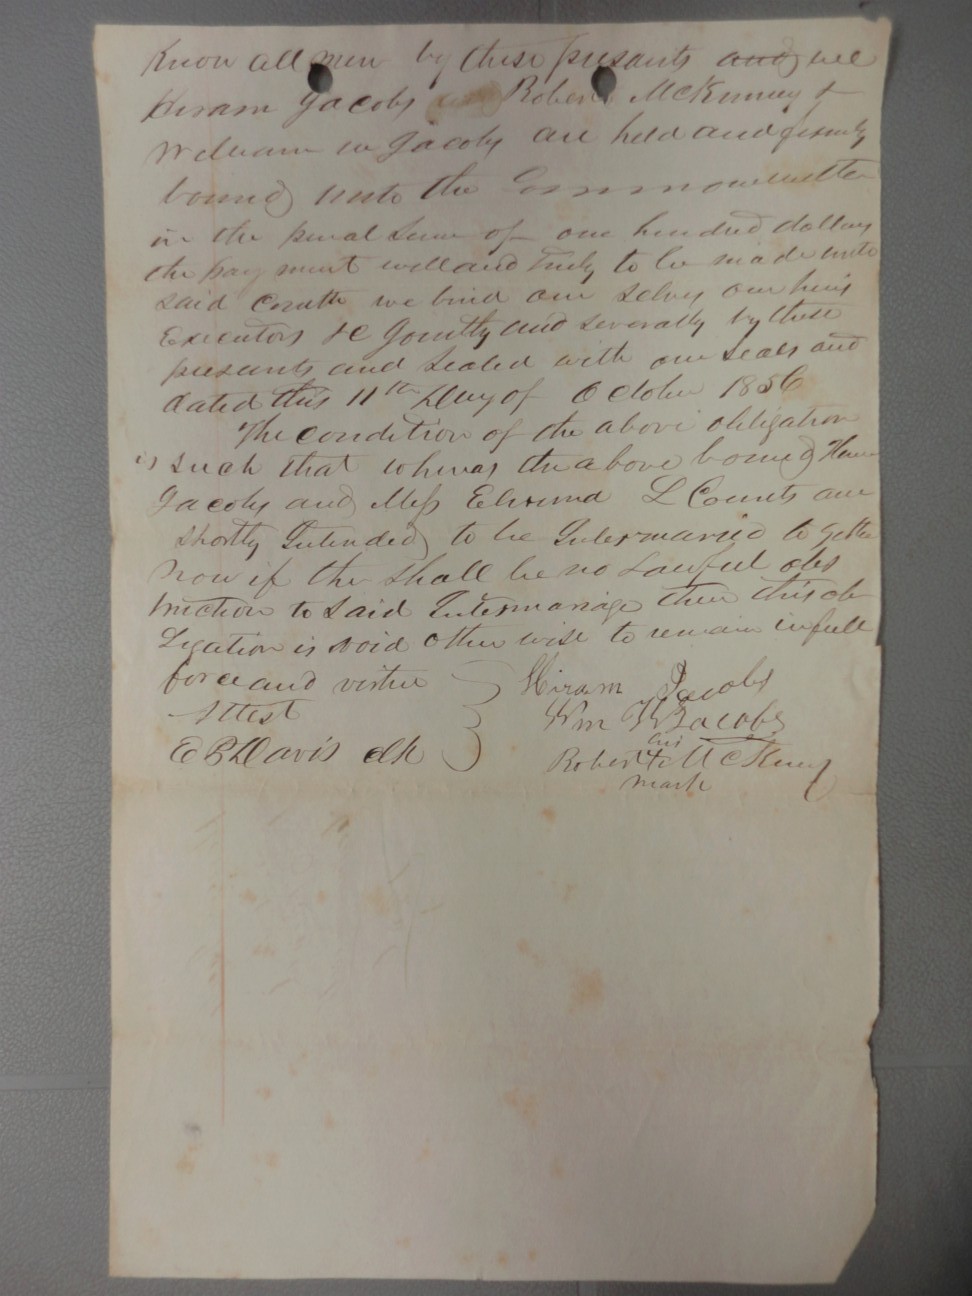 Know all men by these presants and we
Hiram Jacobs Robert McKinney &
William W Jacobs are held and firmly
bound unto the Commonwealth
in the penal Sum of one hundred dollars
the payment well and truly to be made unto
said Cmth we bind our selves our heirs
Executors &c Jointly and severally by these
presants and sealed with our seals and
dated this 11th Day of October 1856
The condition of the above obligation
is such that whereas the above bound Hiram
Jacobs and Miss L Counts are
shortly Intended to be Intermarried to gether
Now if the shall be no Lawful obs
truction to said Intermariage then this ob
ligation is void other wise to remain in full
force and virtue
Hiram Jacobs
Attest
Wm W Jacobs
E B Davis clk
his
Robert X McKinney
mark